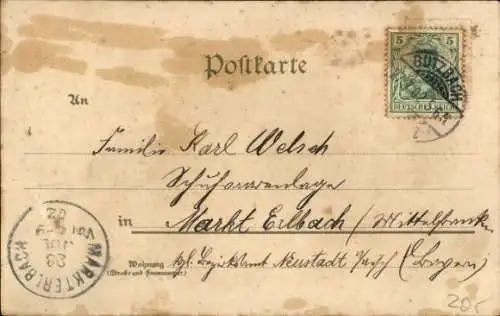 Postkarte
5 5
BUTZBACH
DEUTSCHES REICH
An
Familie Karl Welsch
in Markt Erlbach (Mittelfranken
Wohnung kgl. Bezirksamt Neustadt (Bayern)
(Straße und Hausnummer)
MARKTERLBACH
28
JUL
02
20,-